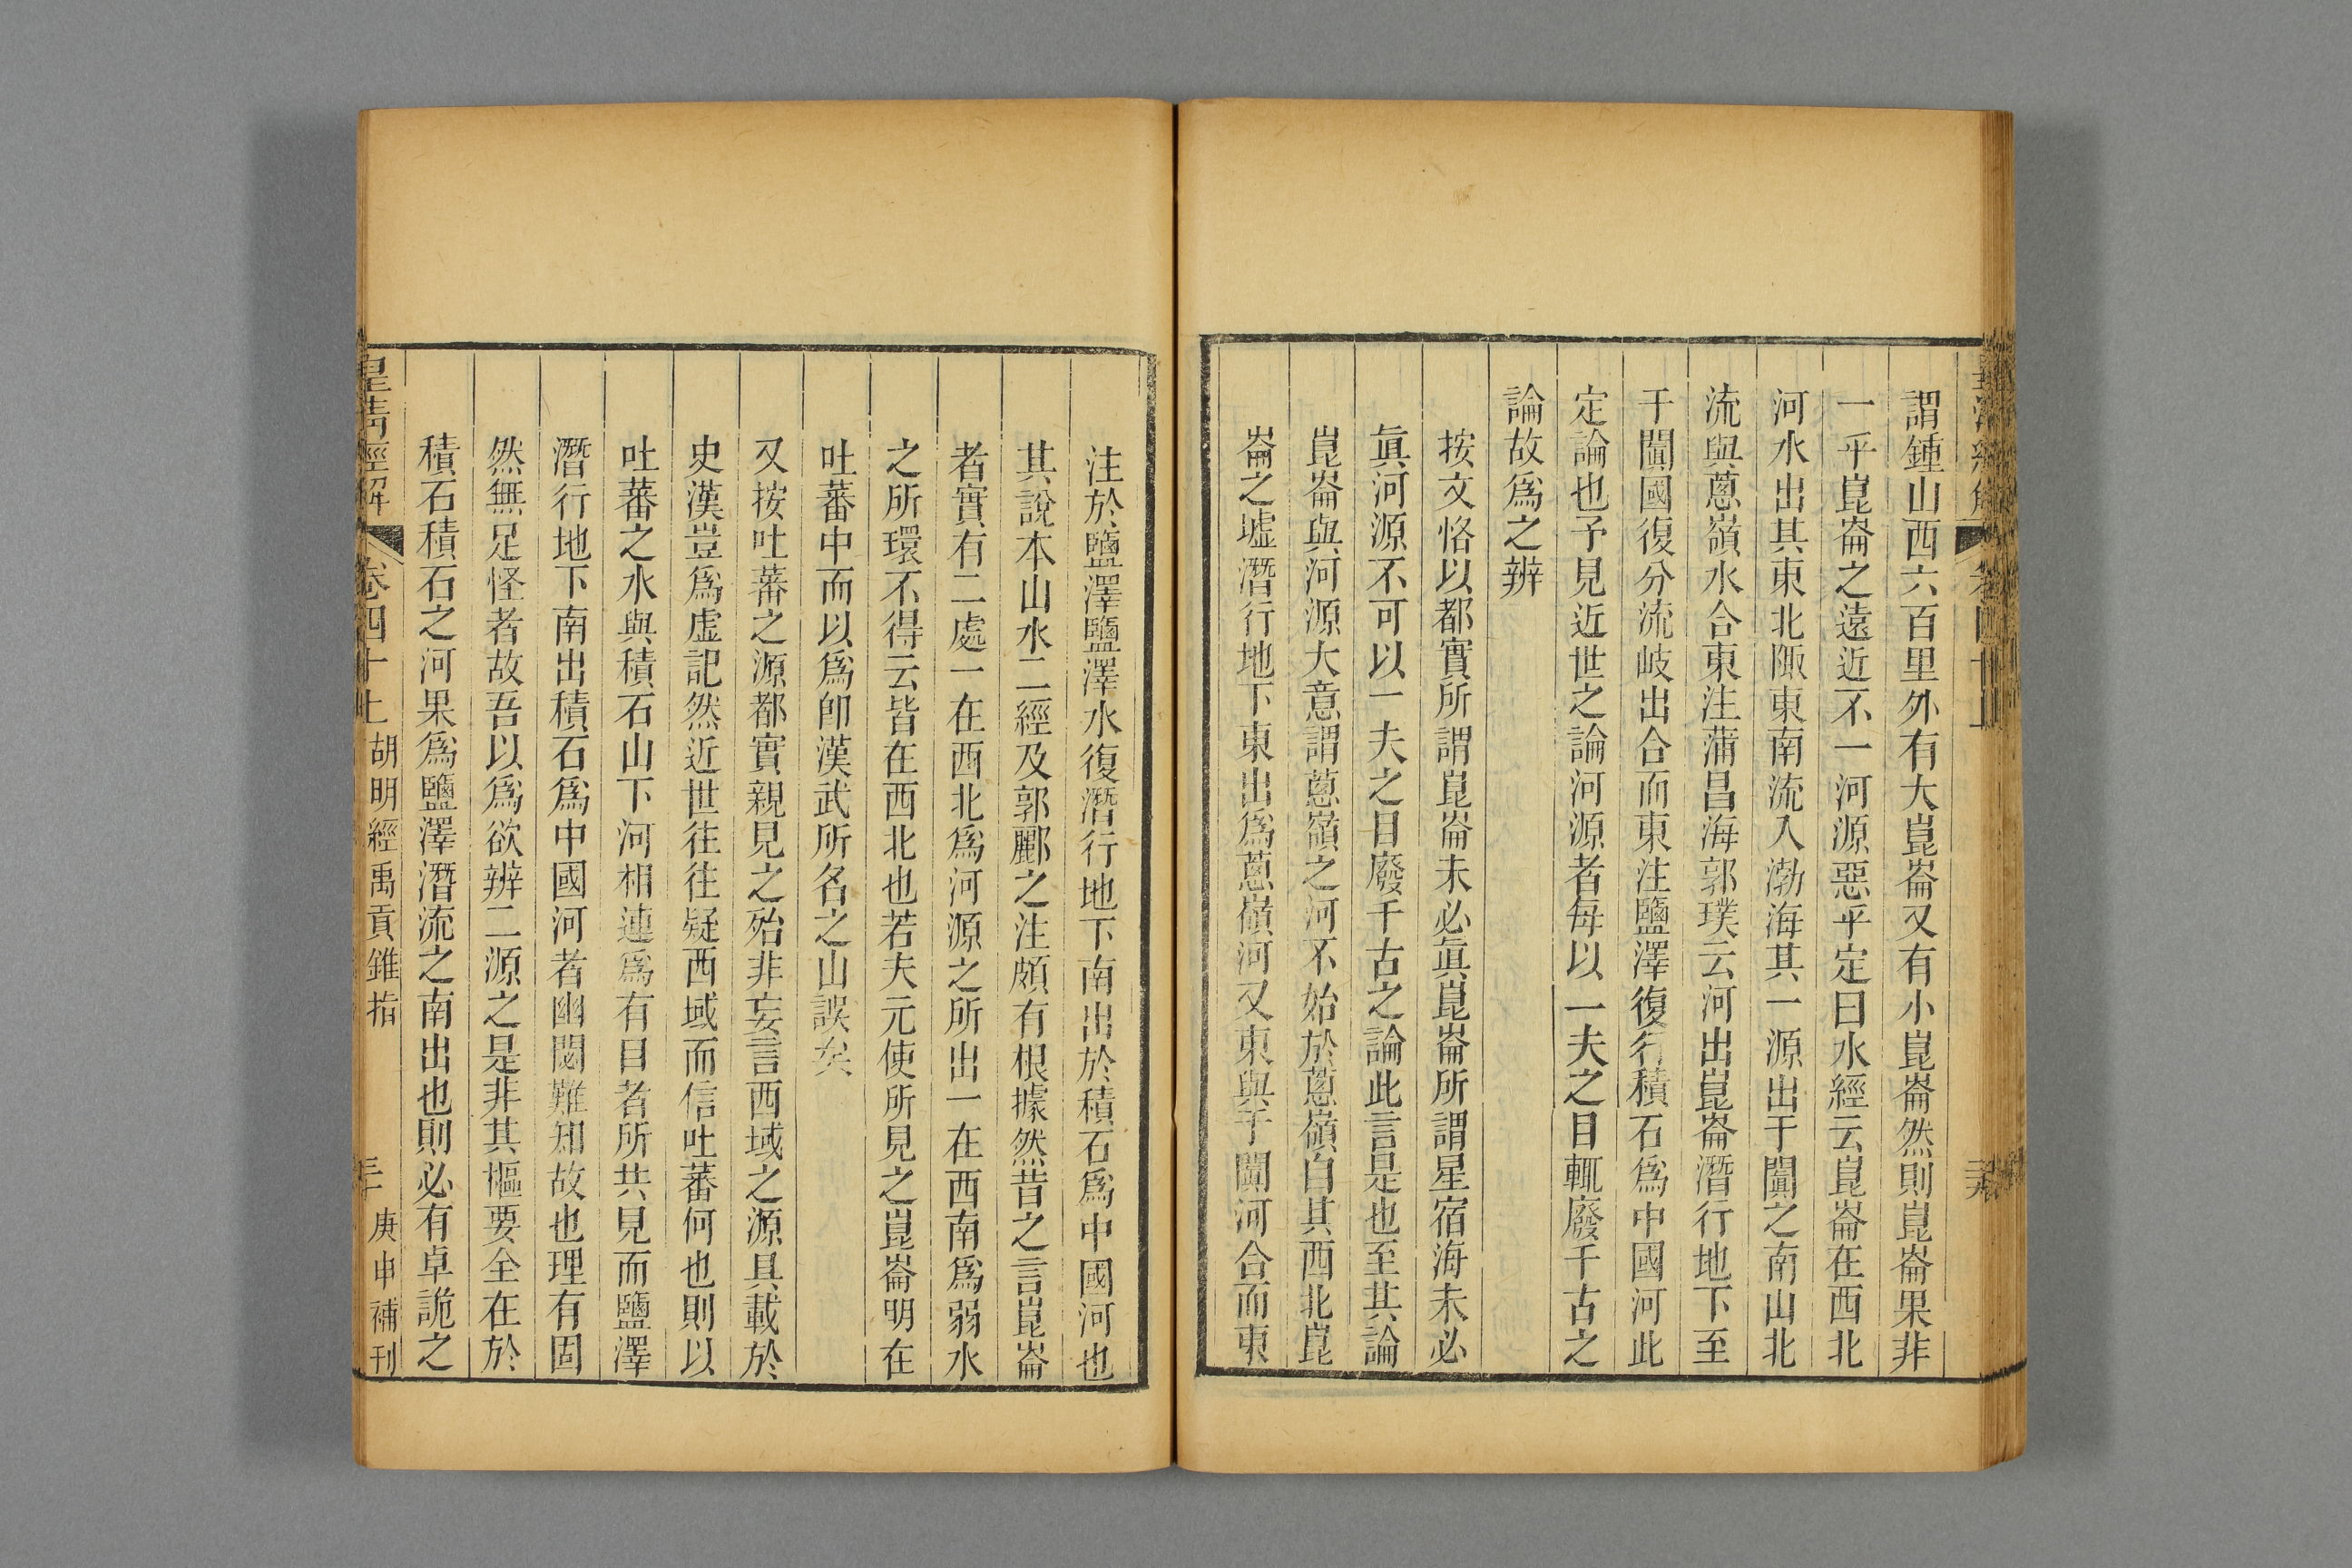 謂鍾山西六百里外有大崑崙又有小崑崙然則崑崙果非
一乎崑崙之遠近不一河源惡乎定曰水經云崑崙在西北
河水出其東北陬東南流入渤海其一源出于闐之南山北
流與蔥嶺水合東注蒲昌海郭璞云河出崑崙潛行地下至
于闐國復分流岐出合而東注鹽澤復行積石爲中國河此
定論也予見近世之論河源者每以一夫之目輒廢千古之
論故爲之辨
按文恪以都實所謂崑崙未必眞崑崙所謂星宿海未必
眞河源不可以一夫之目廢千古之論此言是也至其論
崑崙與河源大意謂蔥嶺之河不始於蔥嶺自其西北崑
崙之墟潛行地下東出爲蔥嶺河又東與于闐河合而東
注於鹽澤鹽澤水復潛行地下南出於積石爲中國河也
其說本山水二經及郭酈之注頗有根據然昔之言崑崙
者實有二處一在西北爲河源之所出一在西南爲弱水
之所環不得云皆在西北也若夫元使所見之崑崙明在
吐蕃中而以爲卽漢武所名之山誤矣
又按吐蕃之源都實親見之殆非妄言西域之源具載於
史漢豈爲虛記然近世往往疑西域而信吐蕃何也則以
吐蕃之水與積石山下河相連爲有目者所共見而鹽澤
潛行地下南出積石爲中國河者幽閟難知故也理有固
然無足怪者故吾以爲欲辨二源之是非其樞要全在於
積石積石之河果爲鹽澤潛流之南出也則必有卓詭之
皇清經解 卷四十上 胡明經禹貢錐指 庚申補刊